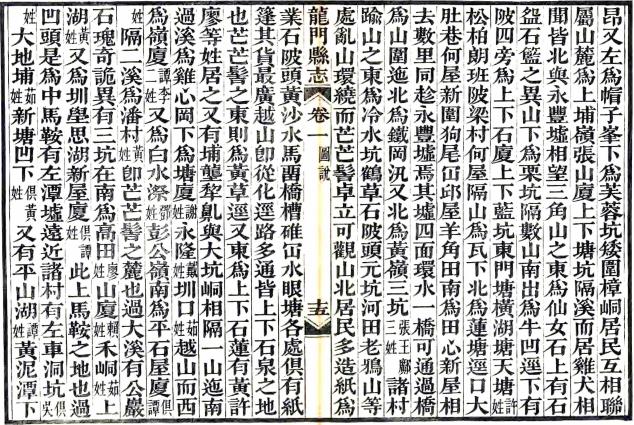 昂又左爲帽子峯下爲芙蓉坑矮圍樟峒居民互相聯
屬山麓爲上埔嶺張山廈上下塘坑隔溪而居雞犬相
聞皆北與永豐墟相望三角山之東爲仙女石上有石
盆石籃之異山下爲栗坑隔數山南出爲牛凹逕下有
陂四旁爲上下石廈上下藍坑東門塘橫湖塘天塘許姓
松柏朗班陂梁村何屋隔山爲瓦下北爲蓮塘逕口大
肚巷何屋新圍狗尾㘭邱屋羊角田南爲田心新屋相
去數里同趁永豐墟焉其墟四面環水一橋可通過橋
爲山圍迤北爲鐵岡沉又北爲黃嶺三坑張王鄺三姓諸村
踰山之東爲冷水坑鶴草石陂頭元坑河田老鴉山等
處亂山環繞而芒芒髻卓立可觀山北居民多造紙爲
龍門縣志 卷一 圖說 十五
業石陂頭黃沙水馬罾橋槽碓㘭水眼塘各處俱有紙
篷其貨最廣越山卽從化逕路多通皆上下石泉之地
也芒芒髻之東則爲黃草逕又東爲上下石蓮有黃許
廖等姓居之又有埔壟犂䑕與大坑峒相隔一山迤南
過溪爲雞心岡下爲塘廈謝姓永隆戴姓圳口茹姓越山而西
爲嶺廈李譚姓又爲白水漈鄧姓彭公嶺南爲平石屋廈俱譚姓
隔二溪爲潘村黃姓卽芒芒髻之麓也過大溪有公嚴
石瑰奇詭異有三坑在南爲高田廖姓山廈賴姓禾峒茹姓上
湖黃姓又爲圳壆思湖新屋廈俱譚姓此上馬鞍之地也過
凹頭是爲中馬鞍有左潭墟遠近諸村有左車洞坑俱吳姓
大地埔茹姓新塘凹下俱黃姓又有平山湖譚姓黃泥潭下